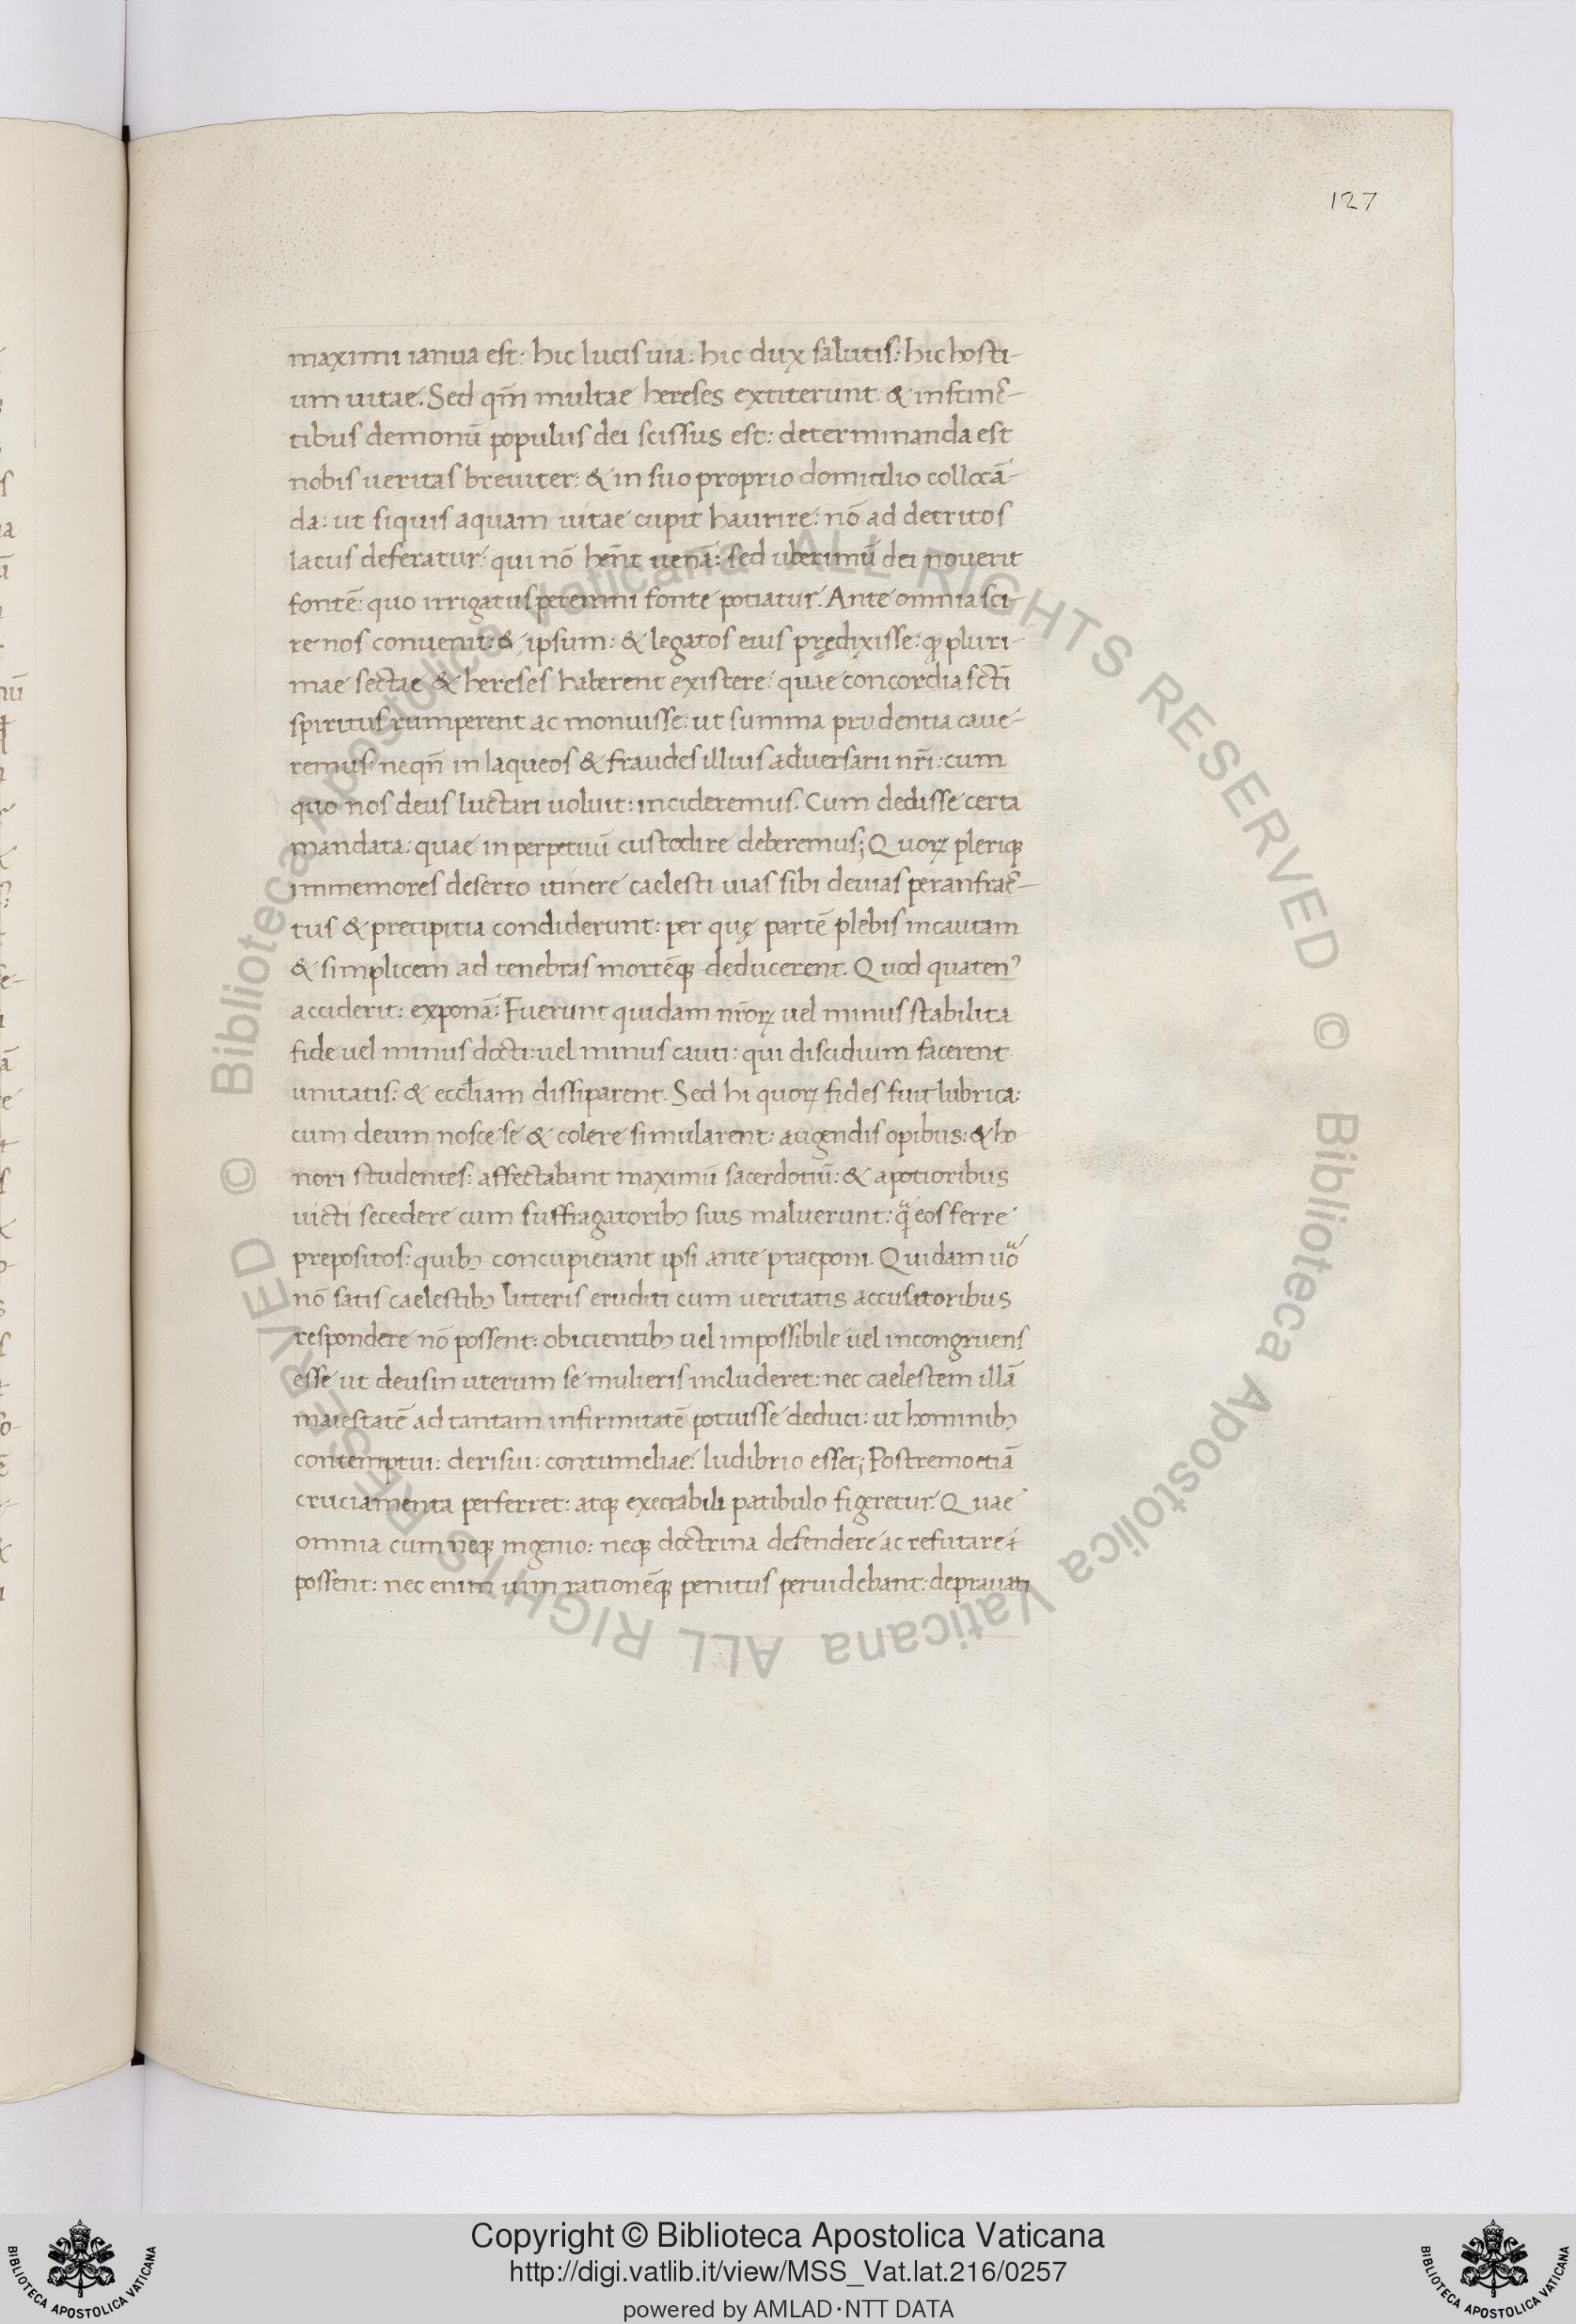 127
maximi ianua est: hic lucis uia: hic dux salutis: hic hosti-
um uitae. Sed qm̄ multae hereses extiterunt & instinc̄-
tibus demonū populus dei scissus est: determinanda est
nobis ueritas breuiter: & in suo proprio domicilio collocā-
da: ut siquis aquam uitae cupit haurire: nō ad detritos
lacus deferatur: qui nō hēnt uenā: sed uberimū dei nouerit
fontē: quo irrigatus peremni fonte potiatur. Ante omnia sci-
re nos conuenit: & ipsum: & legatos eius prędixisse: ꝙ pluri-
mae sectae & hereses haberent existere: quae concordia sctī
spiritus rumperent ac monuisse: ut summa prudentia caue-
remus neqn̄ in laqueos & fraudes illius aduersarii nrī: cum
quo nos deus luctari uoluit: incideremus. Cum dedisse certa
mandata: quae in perpetuū custodire deberemus; Quorꝝ pleriqꝫ
immemores deserto itinere caelesti uias sibi deuias per anfrac̄-
tus & precipitia condiderunt: per quę partē plebis incautam
& simplicem ad tenebras mortēqꝫ deducerent. Quod quatenꝰ
acciderit: exponā: Fuerunt quidam nr̄orꝝ uel minus stabilita
fide uel minus docti: uel minus cauti: qui discidium facerent
unitatis: & eccl̄iam dissiparent. Sed hi quorꝝ fides fuit lubrica:
cum deum nosce se & colere simularent: augendis opibus: & ho
nori studentes: affectabant maximū sacerdotiū: & a potioribus
uicti secedere cum suffragatoribꝫ suis maluerunt: qᷓ eos ferre
prepositos: quibꝫ concupierant ipsi ante praeponi. Quidam uō
nō satis caelestibꝫ litteris eruditi cum ueritatis accusatoribus
respondere nō possent: obicientibꝫ uel impossibile uel incongruens
esse ut deus in uterum se mulieris includeret: nec caelestem illā
maiestatē ad tantam infirmitatē potuisse deduci: ut hominibꝫ
contemptui: derisui: contumeliae: ludibrio esset; Postremo etiā
cruciamenta perferret: atqꝫ execrabili patibulo figeretur. Quae
omnia cum neqꝫ ingenio: neqꝫ doctrina defendere ac refutare
possent: nec enim uim rationēqꝫ penitus peruidebant: deprauati
© Biblioteca Apostolica Vaticana ALL RIGHTS RESERVED © Biblioteca Apostolica Vaticana ALL RIGHTS RESERVED
Copyright © Biblioteca Apostolica Vaticana
http://digi.vatlib.it/view/MSS_Vat.lat.216/0257
powered by AMLAD·NTT DATA
BIBLIOTECA APOSTOLICA VATICANA
BIBLIOTECA APOSTOLICA VATICANA